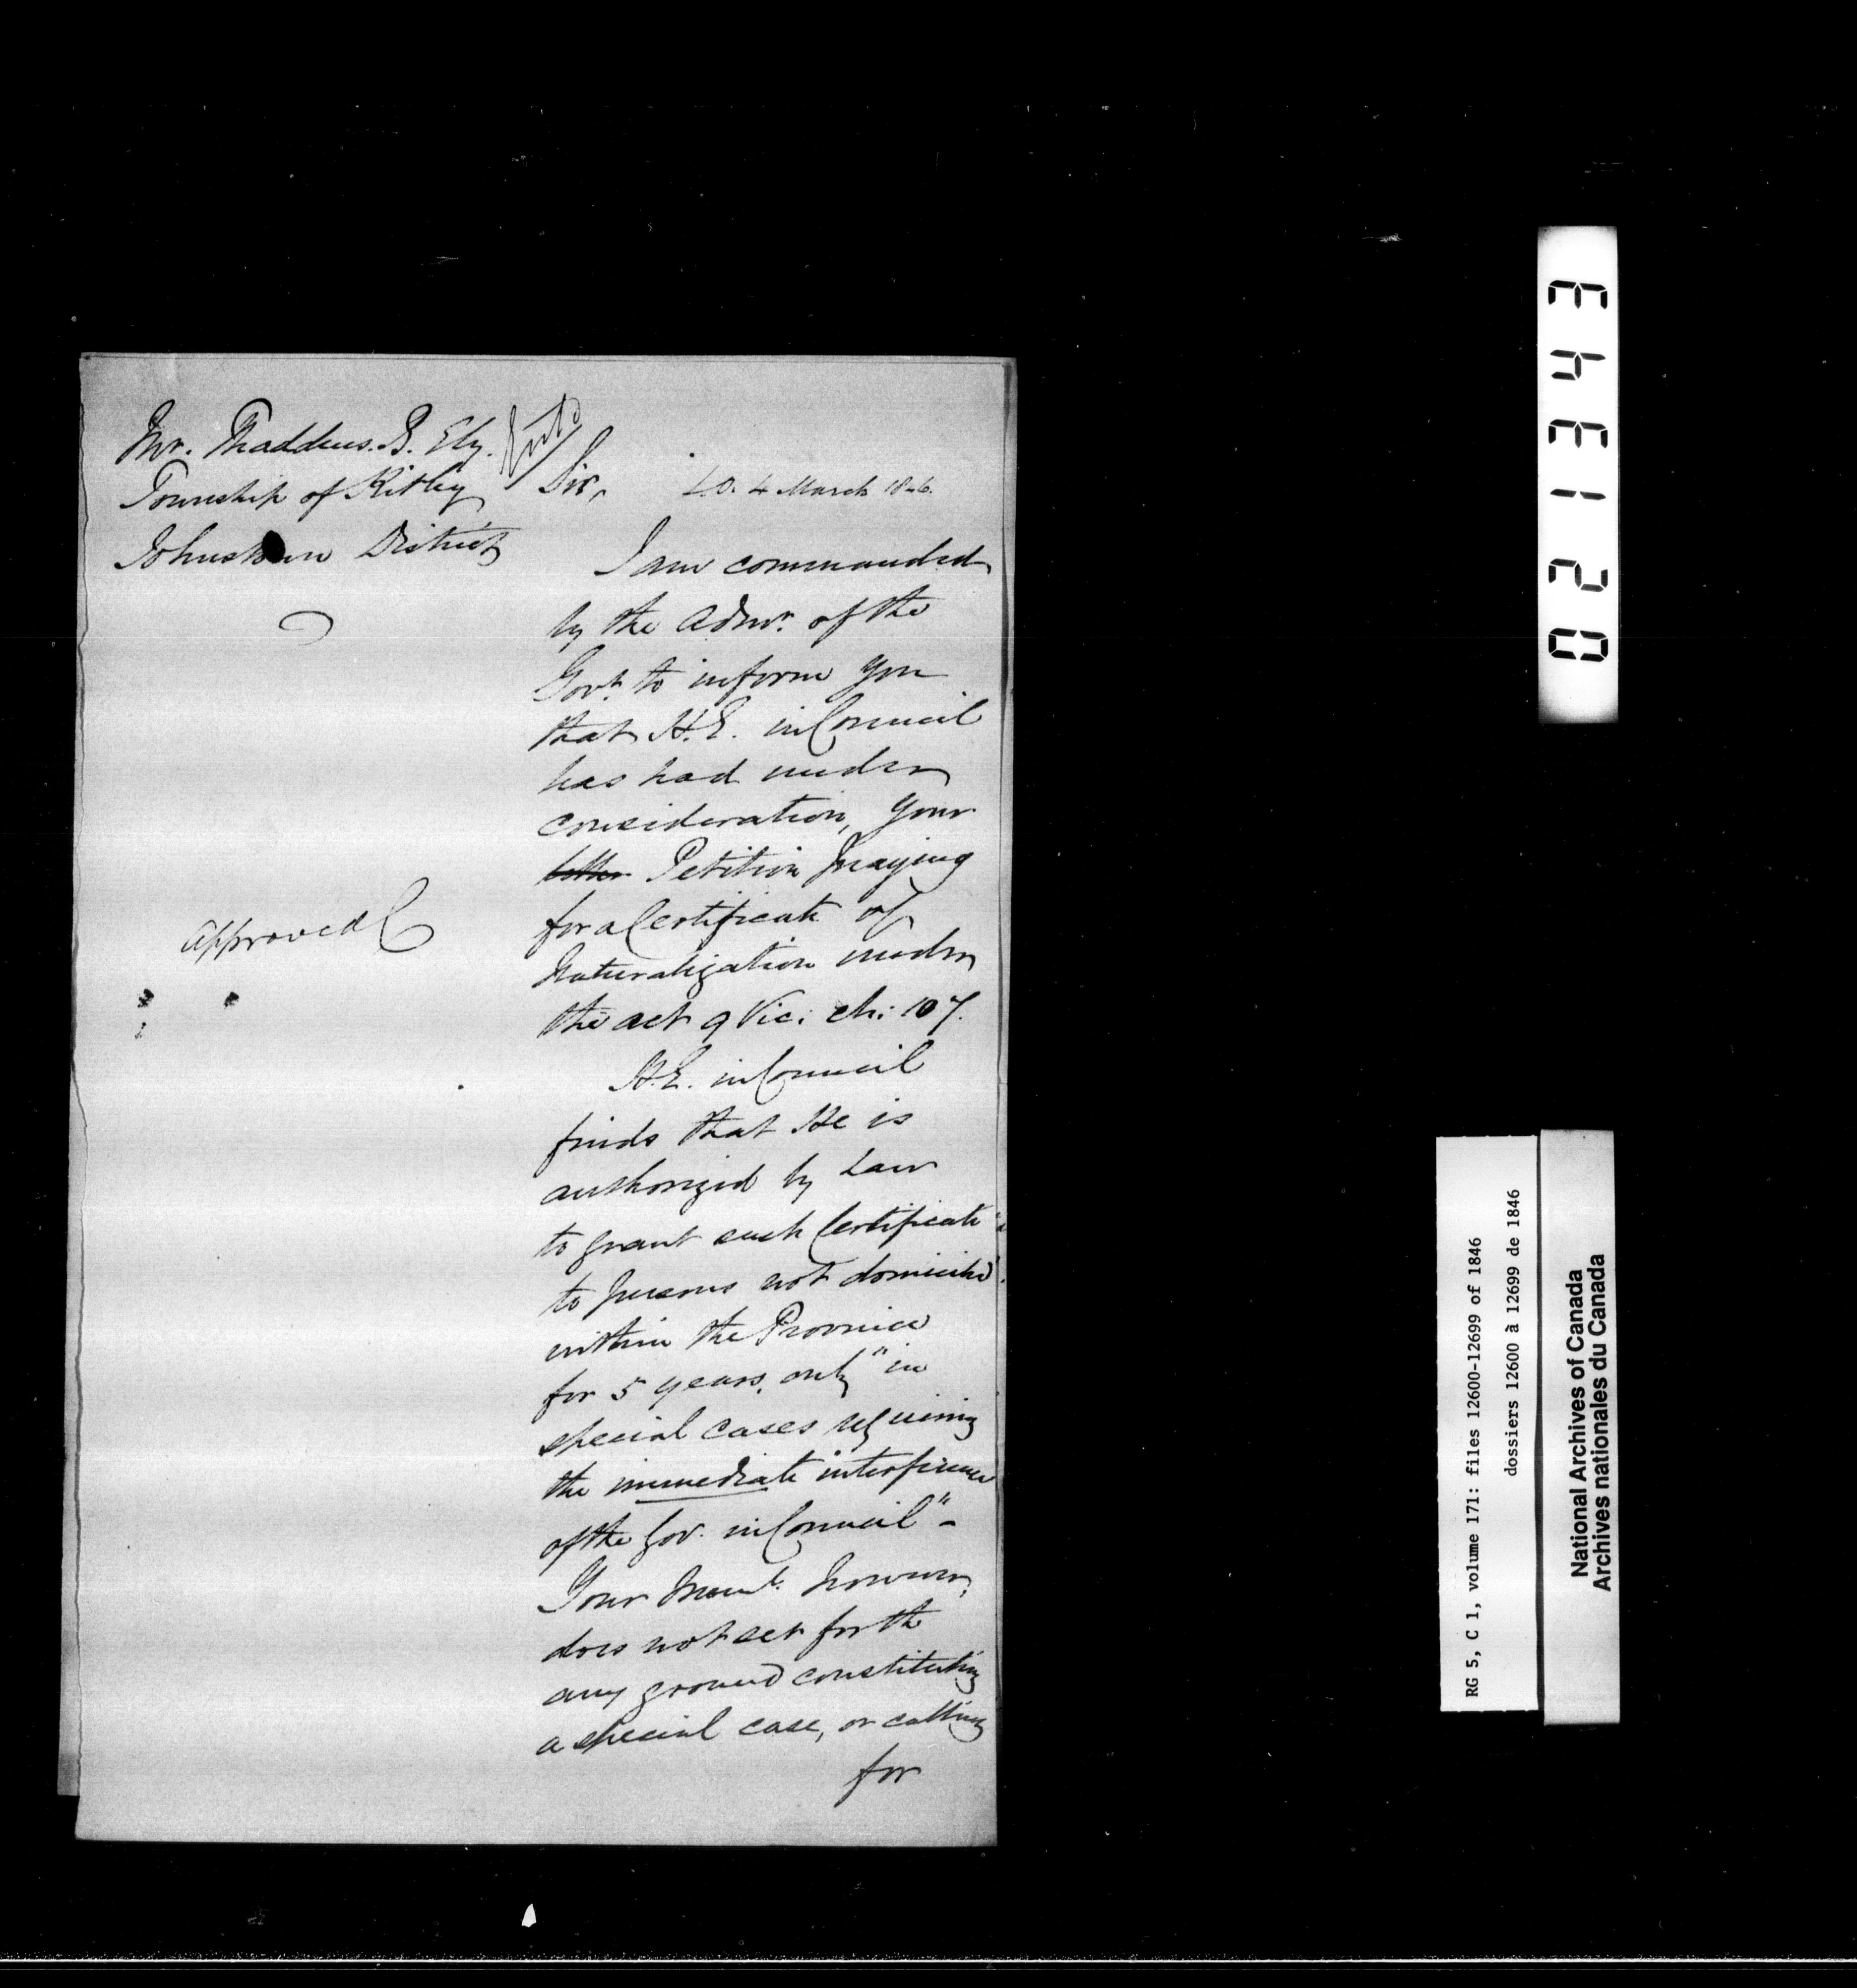 Mr. Thaddeus. B. Ely.
Township of Kitley
Johnstown District
Sir, S.O. 4 March 1846.
I am commanded
by the Admr. of the
Govt. to inform you
that H.E. in Council
has had under
consideration, your
letter Petition praying
for a Certificate of
Naturalization under
the act 9 Vic: ch: 107.
Approved
H.E. in Council
finds that He is
authorized by Law
to grant such Certificate
to persons not domiciled
within the Province
for 5 years, only "in
special cases requiring
the immediate interference
of the Gov. in Council" -
Your Meml. however,
does not set forth
any ground constituting
a special case, or calling
for
023143
RG 5, C 1, volume 171: files 12600-12699 of 1846
dossiers 12600 à 12699 de 1846
National Archives of Canada
Archives nationales du Canada